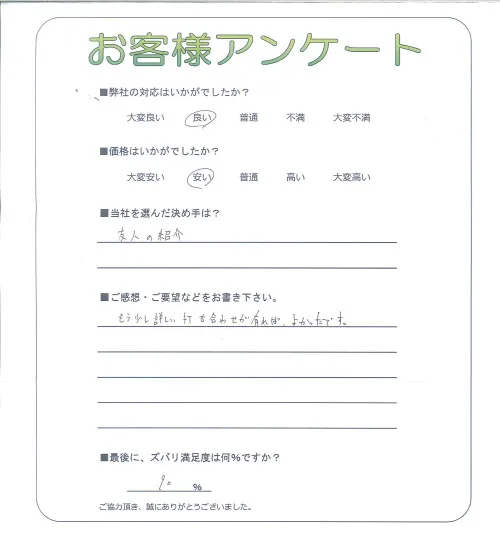 お客様アンケート
■弊社の対応はいかがでしたか？
大変良い 良い 普通 不満 大変不満
■価格はいかがでしたか？
大変安い 安い 普通 高い 大変高い
■当社を選んだ決め手は？
友人の紹介
■ご感想・ご要望などをお書き下さい。
もう少し詳しい打ち合わせが有れば、よかったです。
■最後に、ズバリ満足度は何％ですか？
90 %
ご協力頂き、誠にありがとうございました。